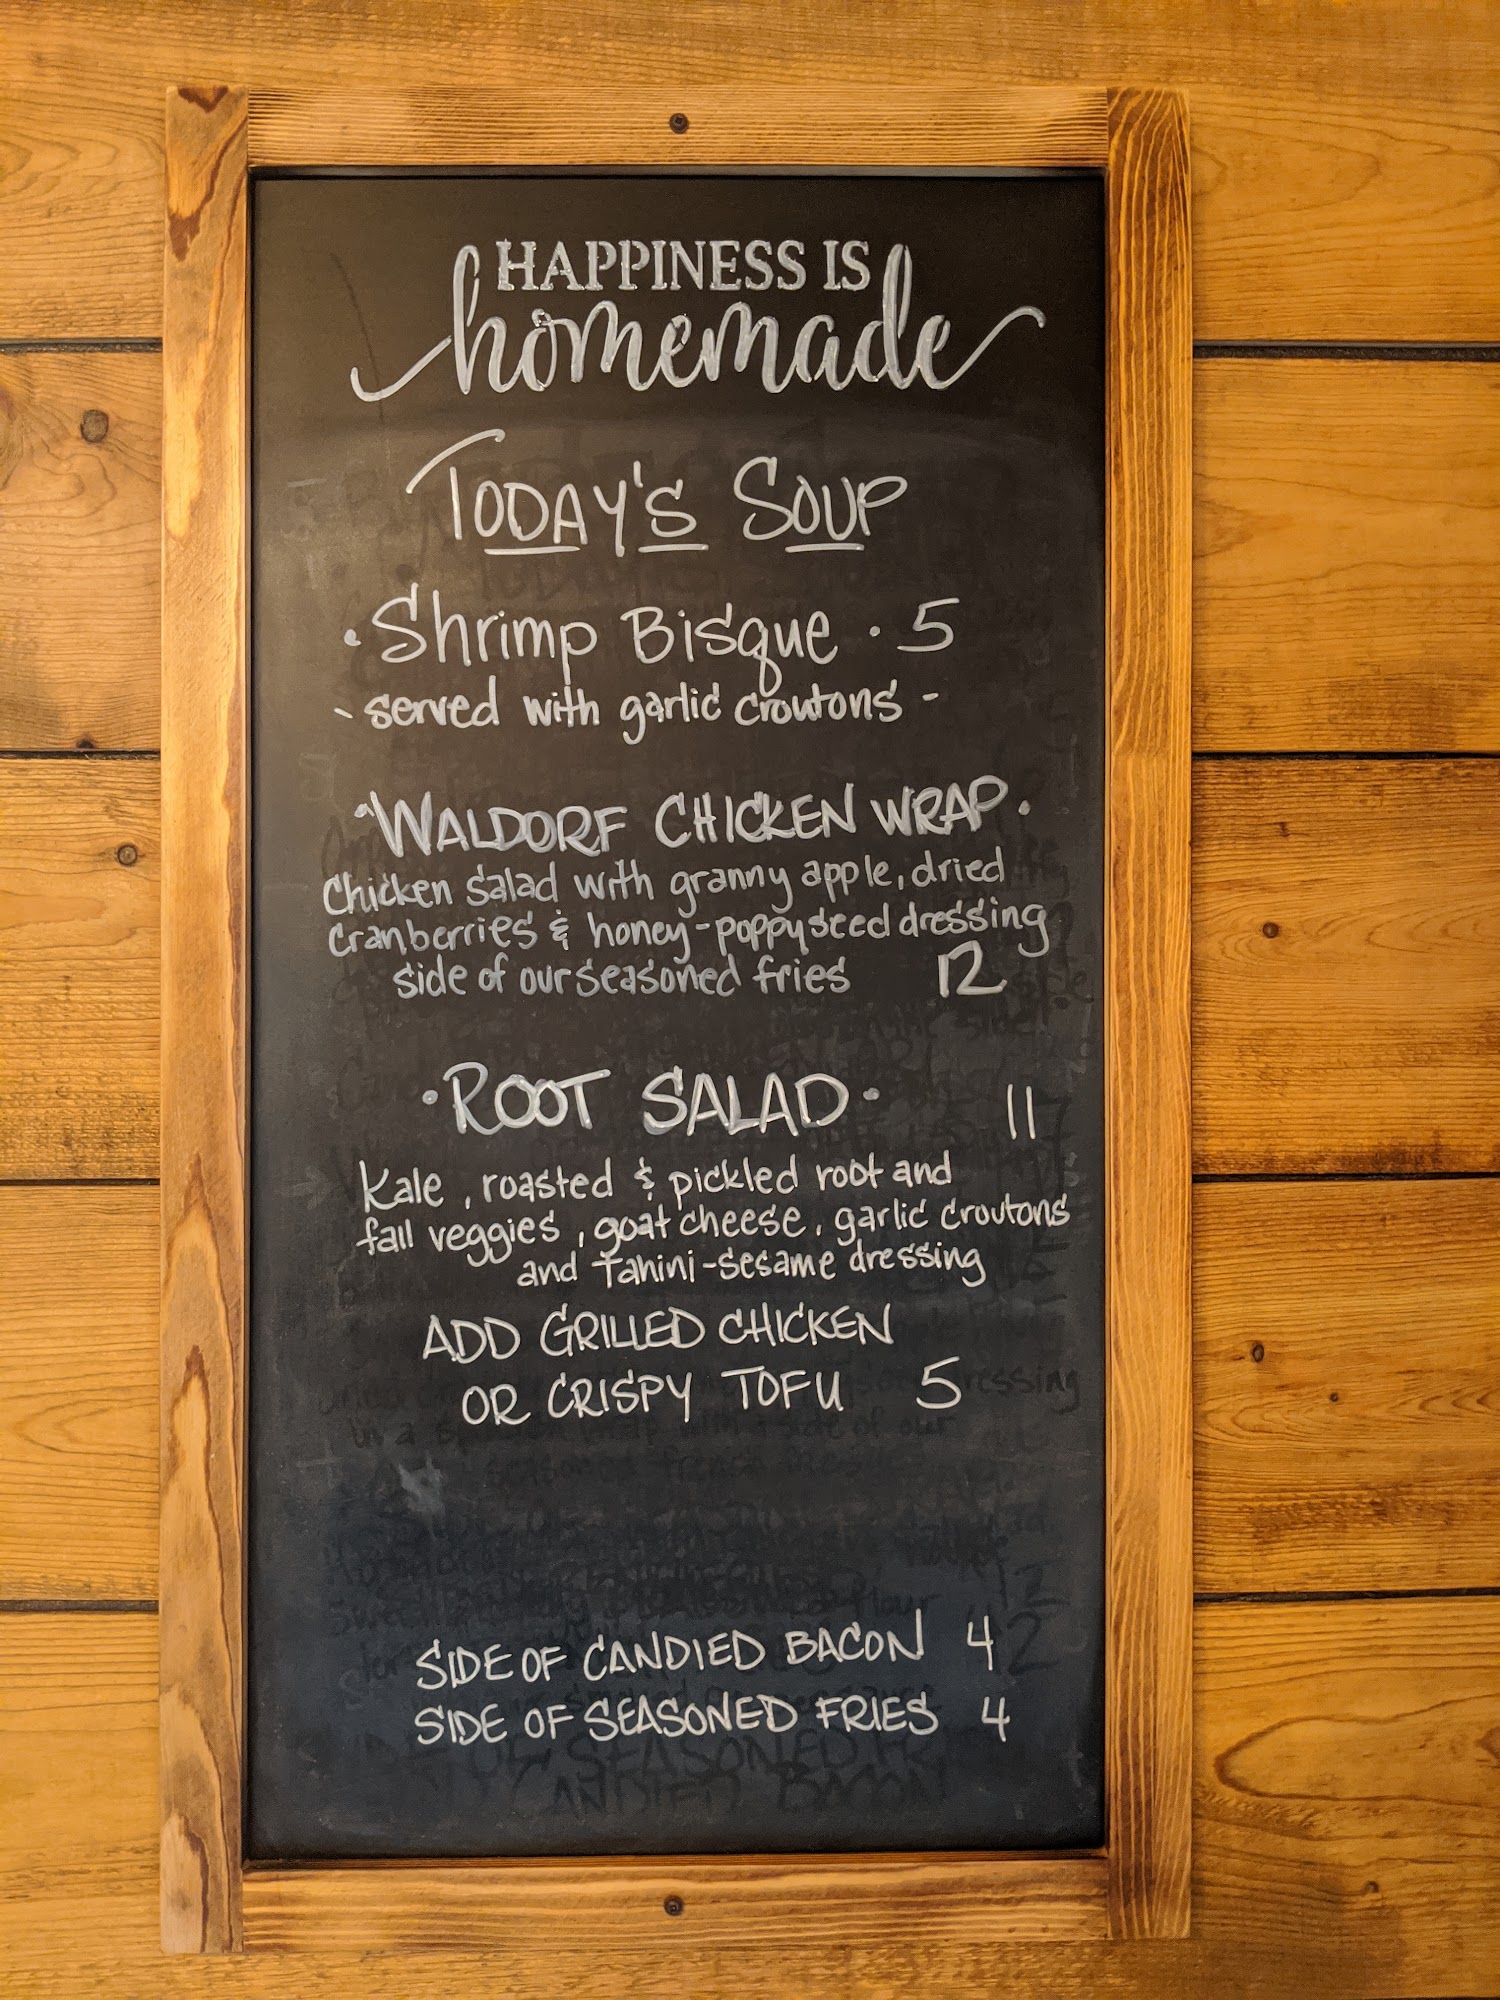 HAPPINESS IS
homemade
TODAY'S SOUP
• Shrimp Bisque • 5
- served with garlic croutons -
• WALDORF CHICKEN WRAP •
Chicken Salad with granny apple, dried
cranberries & honey-poppyseed dressing
side of our seasoned fries 12
• ROOT SALAD • 11
Kale, roasted & pickled root and
fall veggies, goat cheese, garlic croutons
and tahini-sesame dressing
ADD GRILLED CHICKEN
OR CRISPY TOFU 5
SIDE OF CANDIED BACON 4
SIDE OF SEASONED FRIES 4